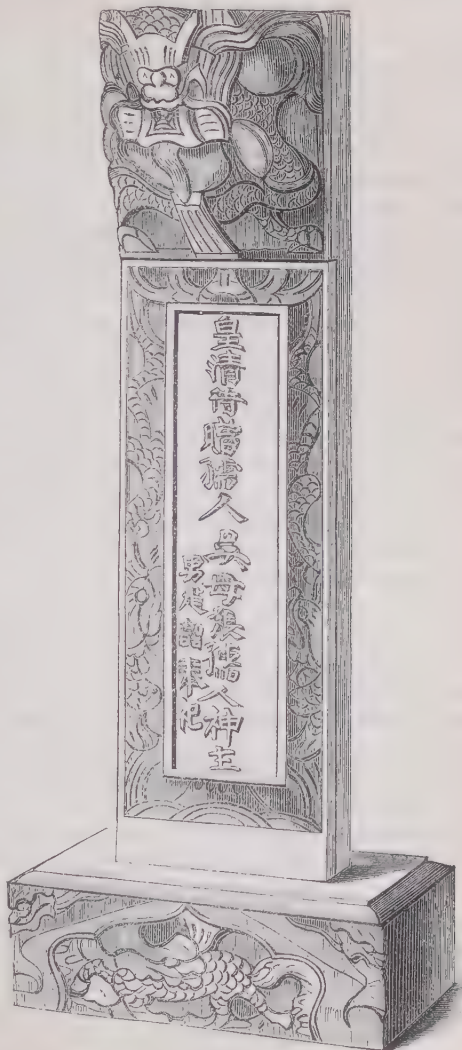 皇清待贈孺人吳母張孺人神主
男奉祀